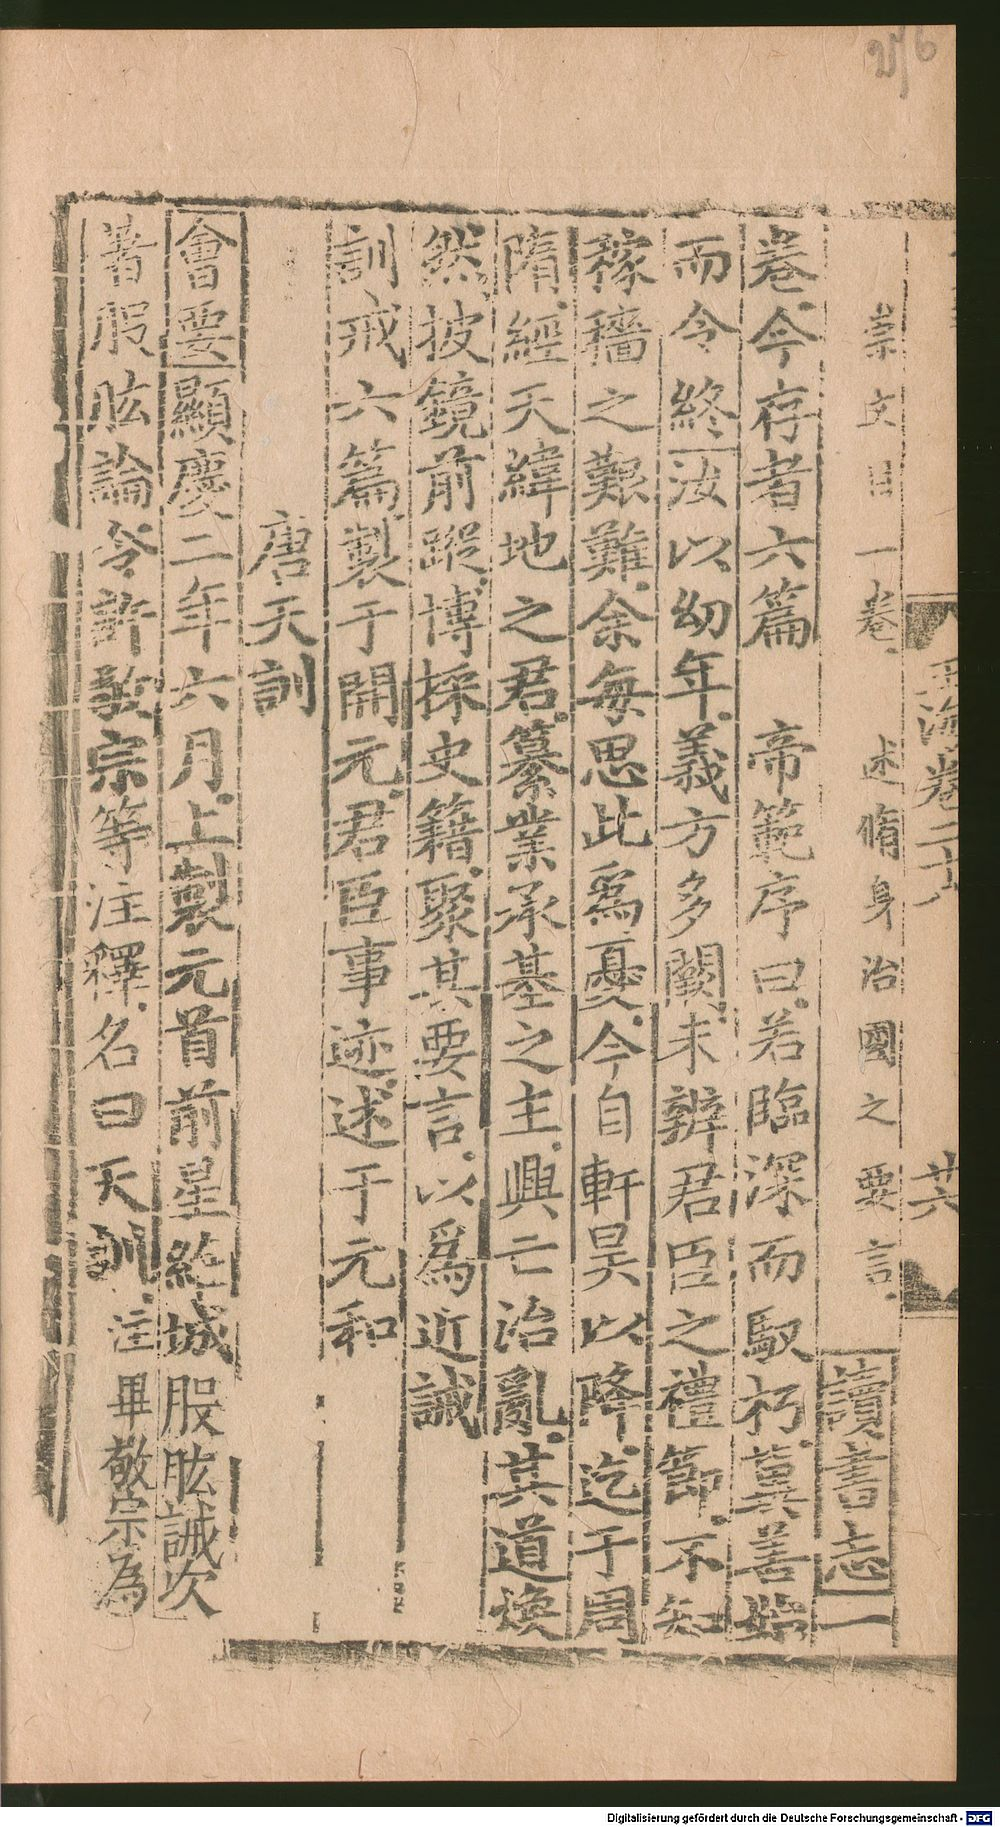 崇文目一卷述脩身治國之要言讀書志一
卷今存者六篇 帝範序曰若臨深而馭朽冀善始
而令終汝以幼年義方多闕未辨君臣之禮節不知
稼穡之艱難余每思此爲憂今自軒昊以降迄于周
隋經天緯地之君纂業承基之主興亡治亂其道煥
然披鏡前蹤博採史籍聚其要言以爲近誡
訓戒六篇製于開元君臣事迹述于元和
唐天訓
會要顯慶二年六月上製元首前星維城股肱誡次
著股肱論令許敬宗等注釋名曰天訓注畢敬宗為
玉海卷二十八
共
Digitalisierung gefördert durch die Deutsche Forschungsgemeinschaft - DFG